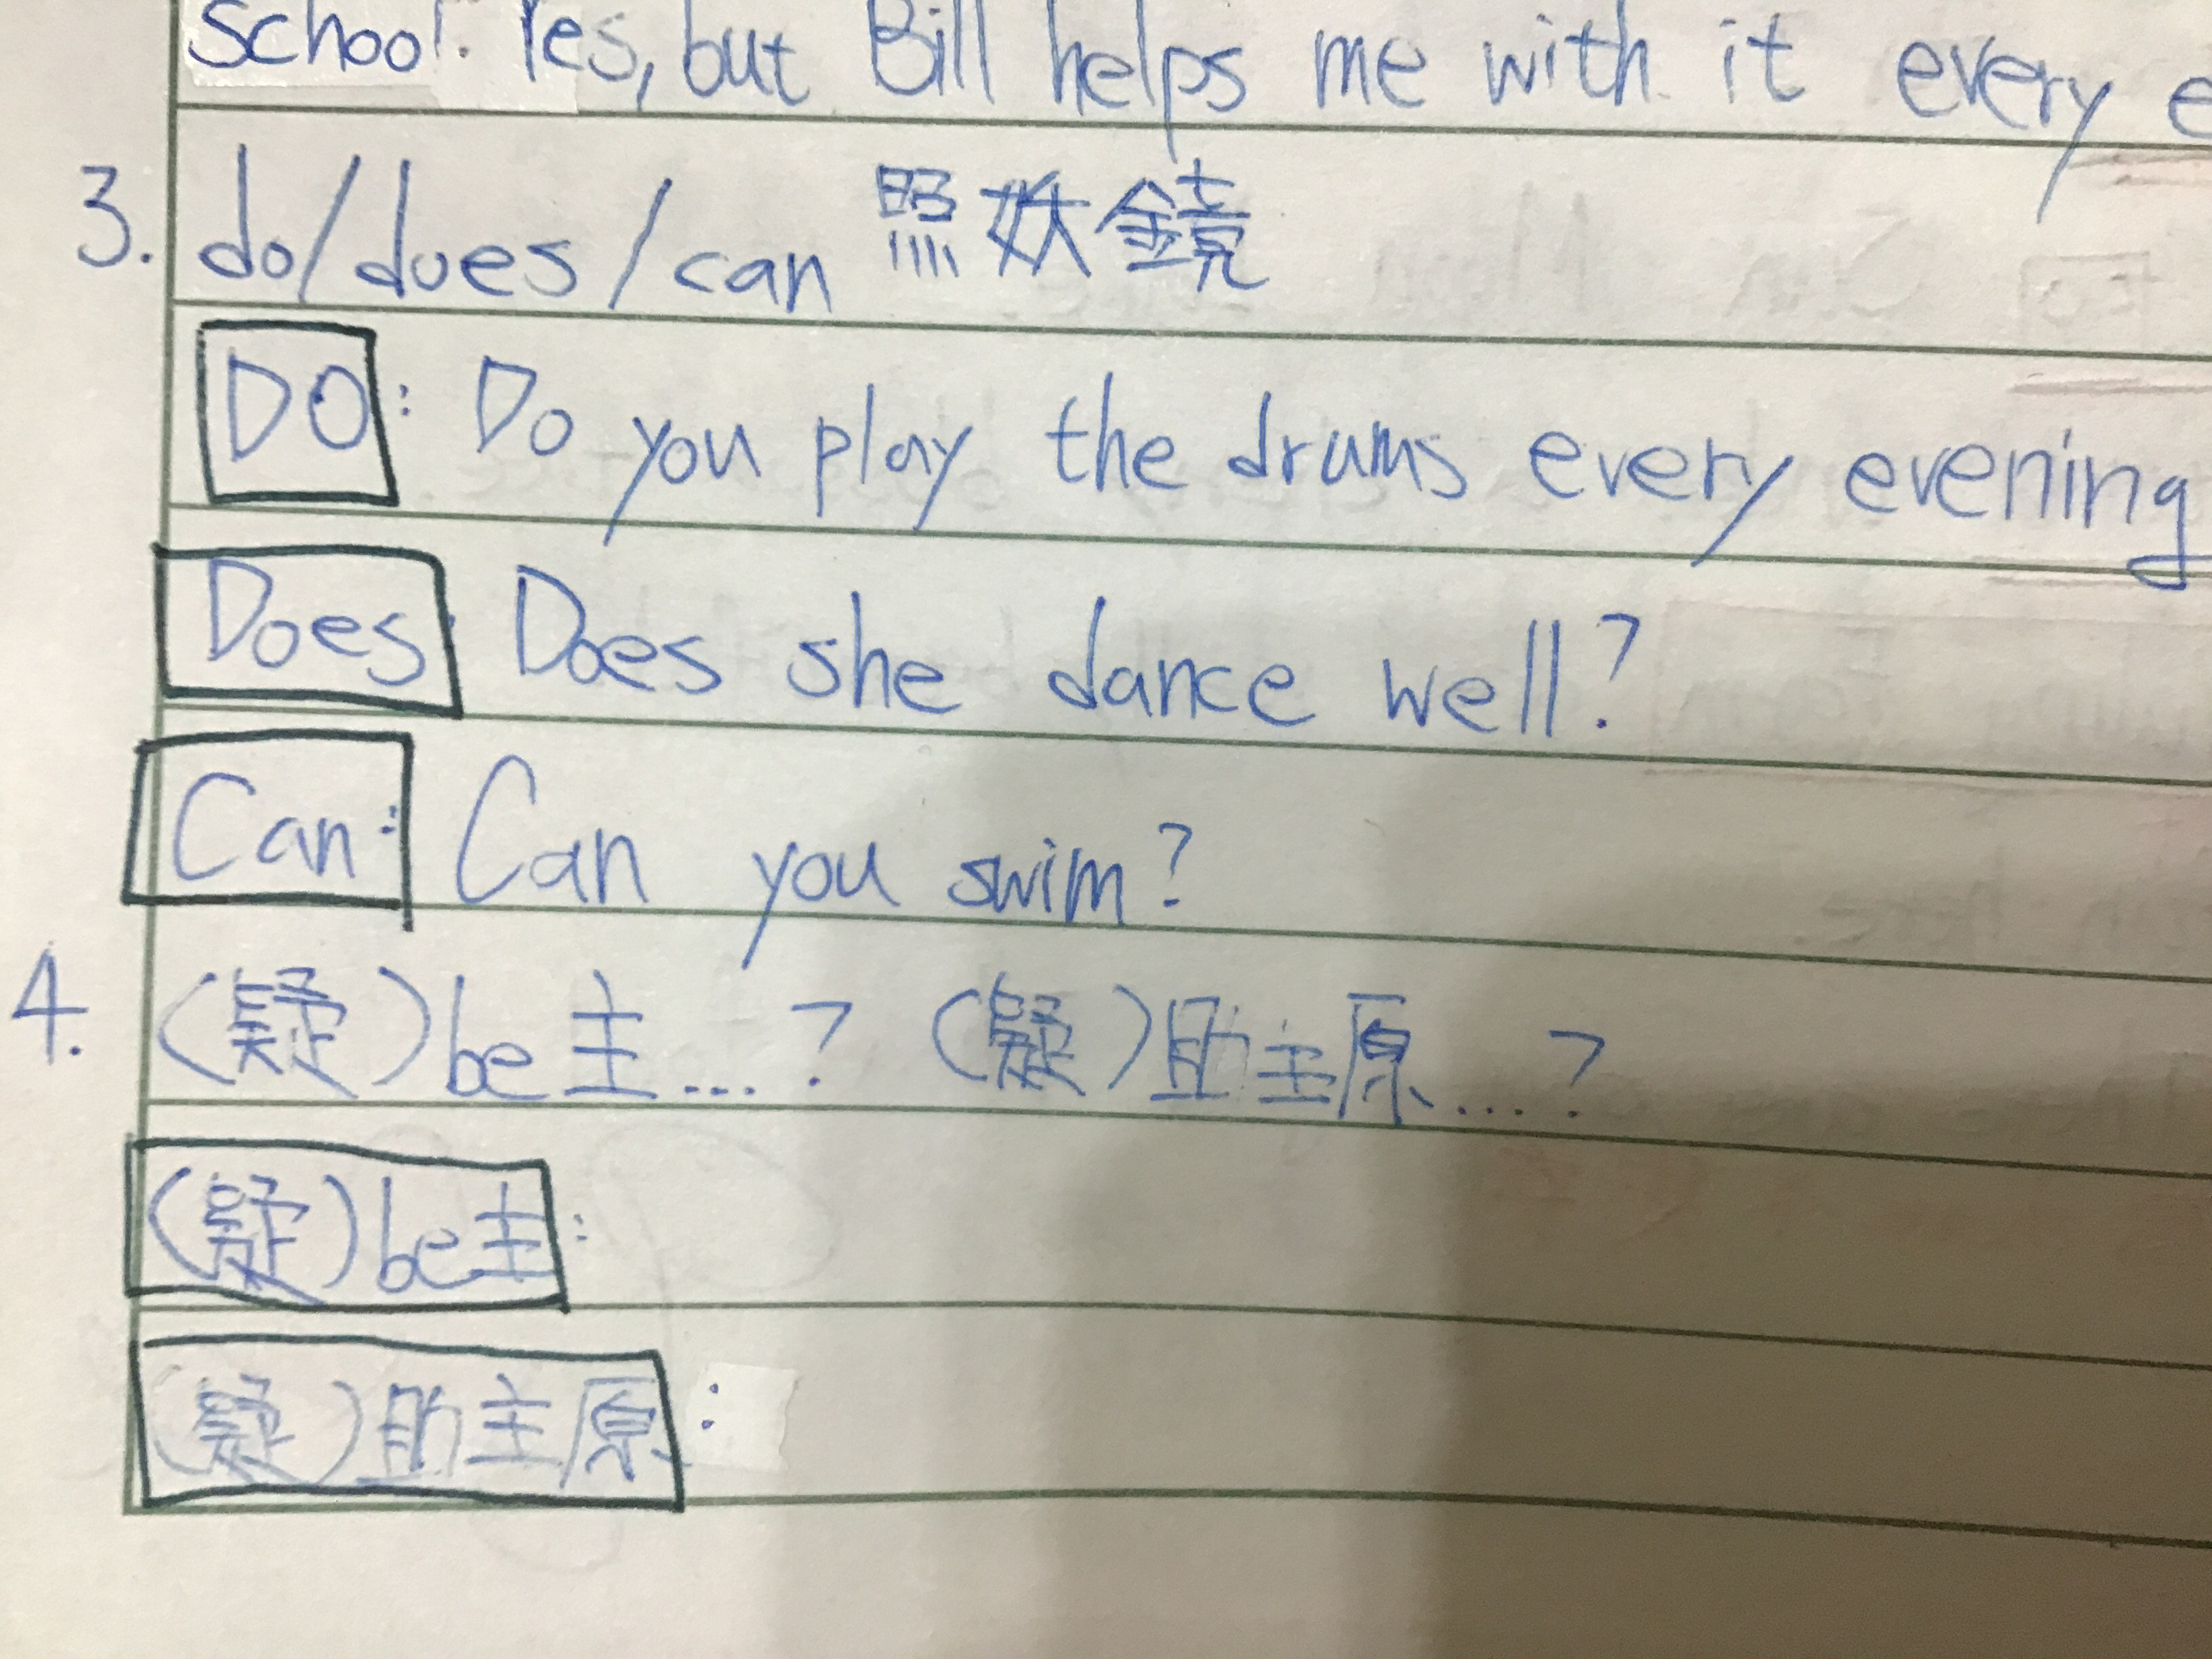 school. Yes, but Bill helps me with it every e
3. do/does/can 照妖鏡
DO: Do you play the drums every evening
Does: Does she dance well?
Can: Can you swim?
4. (疑)be主...? (疑)助主原...?
(疑)be主:
(疑)助主原: